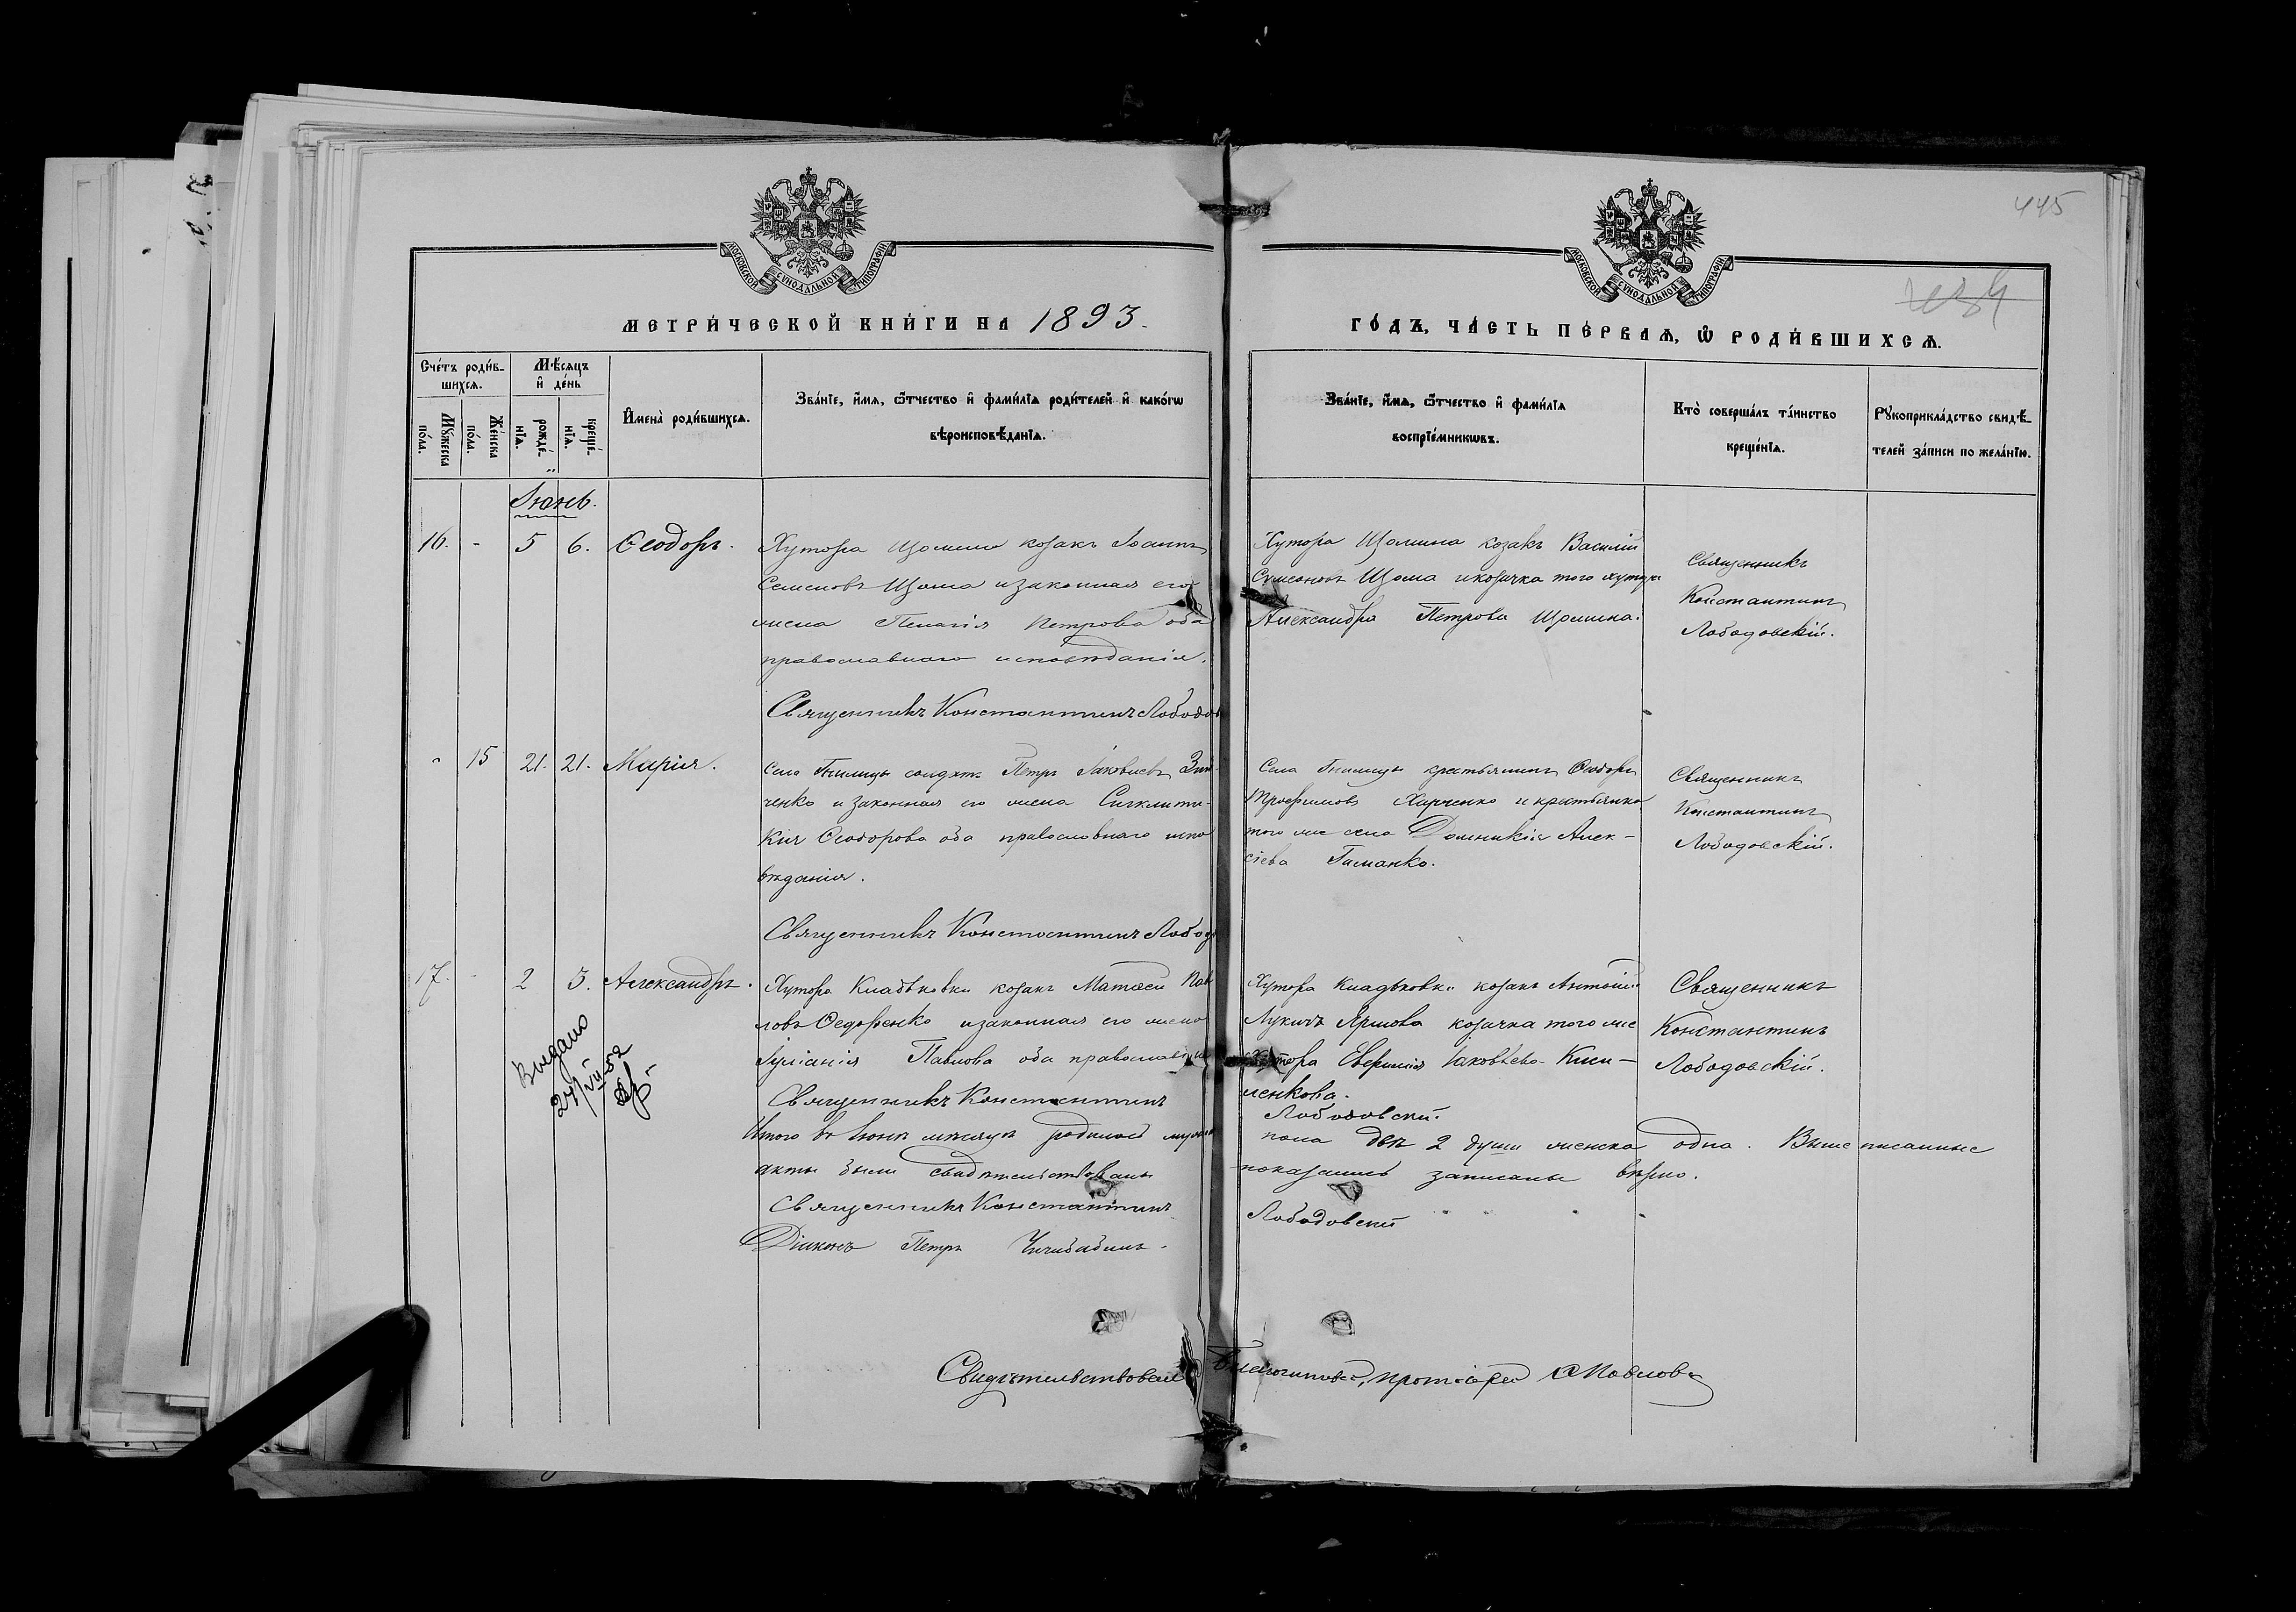 445
МОСКОВСКОЙ СУНОДАЛЬНОЙ ТИПОГРАФІИ
МОСКОВСКОЙ СУНОДАЛЬНОЙ ТИПОГРАФІИ
МЕТРИ́ЧЕСКОЙ КНИ́ГИ НА 1893.
ГО́ДЪ, ЧА́СТЬ ПЕ́РВАѦ, Ѡ҆ РОДИ́ВШИХСѦ.
Сче́тъ роди́в-
шихсѧ.
Мꙋжеска по́ла.
Же́нска по́ла.
Мѣ́сѧцъ
и҆ де́нь
рожде́-
нїѧ.
креще́-
нїѧ.
И҆мена̀ роди́вшихсѧ.
Зва́нїе, и҆́мѧ, ѻ҆́тчество и҆ фами́лїѧ роди́телей и҆ како́гѡ
вѣроисповѣ́данїѧ.
Зва́нїе, и҆́мѧ, ѻ҆́тчество и҆ фами́лїѧ
воспрїе́мникѡвъ.
Кто̀ соверша́лъ та́инство
креще́нїѧ.
Рꙋкоприкла́дство свидѣ́-
телей за́писи по жела́нїю.
Іюнь.
16. - 5 6. Ѳеодоръ.
Хутора козакъ Іоаннъ
Семеновъ Щома и законная его
жена Пелагія Петрова оба
православнаго исповѣданія.
Священникъ Константинъ Лободов
Хутора Щомина козакъ Василій
Сумеоновъ Щома и козачка того хутора
Александра Петрова Щомина.
Священникъ
Константинъ
Лободовскій.
" 15 21. 21. Марія.
Села Гнилицы солдатъ Петръ Іаковлевъ Зин
ченко и законная его жена Сигклити-
кія Ѳеодорова оба православнаго испо
вѣданія.
Священникъ Константинъ Лобод
Села Гнилицы крестьянинъ Ѳеодоръ
Трофимовъ Харченко и крестьянка
того же села Домникія Алек-
сіева
Священникъ
Константинъ
Лободовскій.
17. - 2 3. Александръ.
Хутора козакъ Матѳей Пав
ловъ Ѳедоренко и законная его жена
Іуліанія Павлова оба православнаго
Священникъ Константинъ
Хутора козакъ Антоній
Лукичъ и козачка того же
хутора Іаковлева
Лободовскій.
Священникъ
Константинъ
Лободовскій.
Выдано
24/VII-52
Итого въ Іюнѣ мѣсяцѣ родилось мужеска
пола двѣ 2 души женска одна. Вышеписанные
акты были свидѣтельствованы
показанныя записаны вѣрно.
Священникъ Константинъ
Лободовскій
Діаконъ Петръ Чичибабинъ.
Свидѣтельствовалъ
Благочинный, протоіерей Павловъ